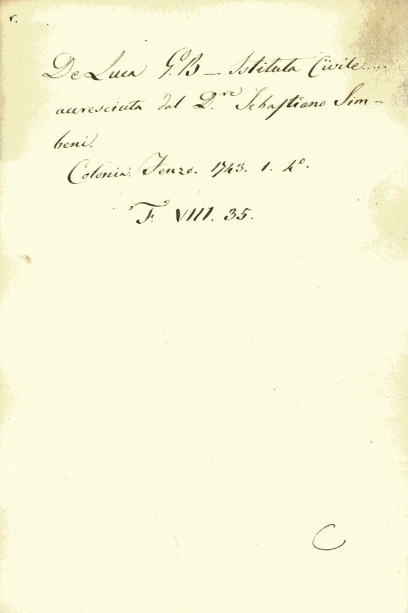 r.
De Luca G. B — Istituta Civile.....
accresciuta dal D.re Sebastiano Sim-
beni.
Colonia. Fenzo. 1743. 1. 4º.
F. VIII. 35.
C